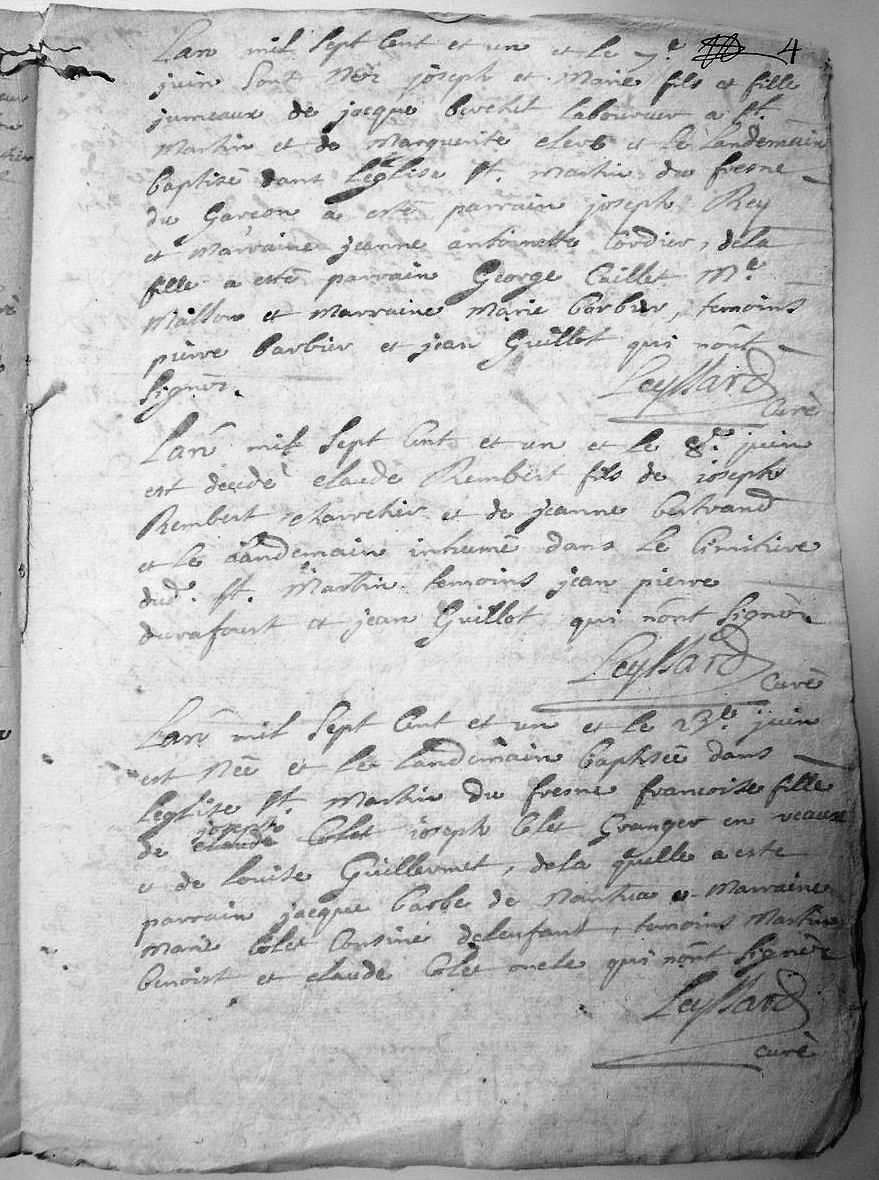 4
Lan mil sept Cent et un et le 7e
juin sont Néz joseph et Marie fils et fille
jumeaux de jacque bechet laboureur a st.
Martin et de Marguerite clerc et le landemain
baptisé dans Léglise st. martin du fresne
du Garcon a esté parrain joseph Rey
et Marraine jeanne antoinette Cordier, dela
fille a esté parrain George Caillet Me
et Marraine Marie barbier, temoins
pierre barbier et jean Guillot qui nont
signés.
Leyssard
Curé
Lan mil sept Cent et un et le 8e. juin
est decedé claude Rembert fils de joseph
Rembert et de jeanne bertrand
et le landemain inhumé dans le Cimitiere
dud. st. Martin temoins jean pierre
durafourt et jean Guillot qui nont signés
Leyssard
Curé
Lan mil sept Cent et un et le 23e. juin
est Née et le landemain baptisée dans
Leglise st martin du fresne francoise fille
joseph
de claude Colet joseph Colet Granger en
et de Louise Guillermet, dela quelle a esté
parrain jacque barbe de Nantua et Marraine
Marie Colet Cousine delenfant, temoins Martin
benoist et claude Colet oncle qui nont signés
Leyssard
curé